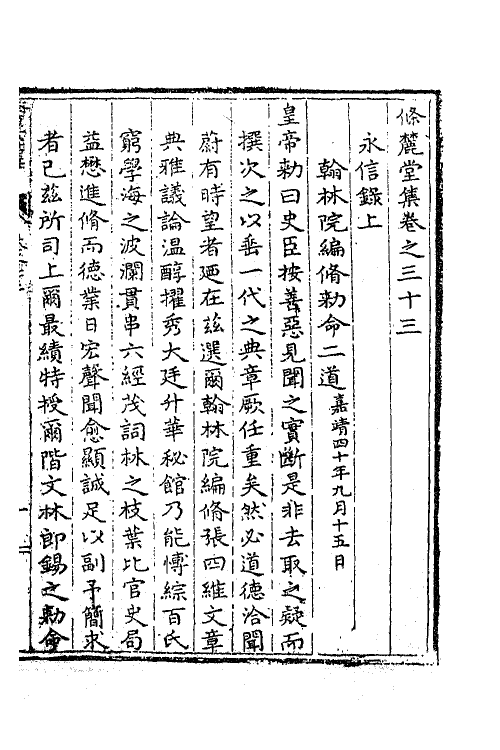 條麓堂集卷之三十三
永信錄上
翰林院編脩勑命二道嘉靖四十年九月十五日
皇帝勑曰史臣按善惡見聞之實斷是非去取之疑而
撰次之以垂一代之典章厥任重矣然必道德洽聞
蔚有時望者廼在茲選爾翰林院編脩張四維文章
典雅議論溫醇擢秀大廷升華秘館乃能博綜百氏
窮學海之波瀾貫串六經茂詞林之枝葉比官史局
益懋進脩而德業日宏聲聞愈顯誠足以副予簡求
者已茲所司上爾最績特授爾階文林郎錫之勑命